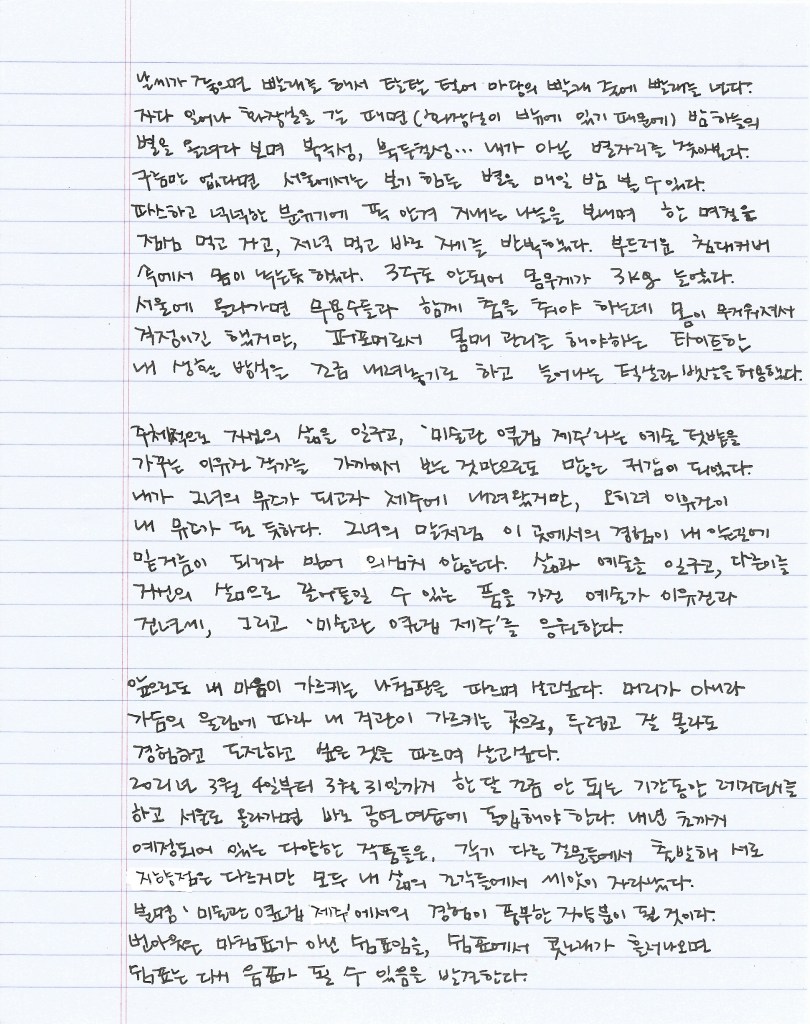 날씨가 좋으면 빨래를 해서 탈탈 털어 마당의 빨래 줄에 빨래를 넌다.
자다 일어나 화장실을 갈 때면(화장실이 밖에 있기 때문에) 밤하늘의
별을 올려다 보며 북극성, 북두칠성… 내가 아는 별자리를 찾아본다.
구름만 없다면 서울에서는 보기 힘든 별을 매일 밤 볼 수 있다.
따스하고 넉넉한 분위기에 푹 안겨 지내는 나날을 보내며 한 며칠은
점심 먹고 자고, 저녁 먹고 바로 자기를 반복했다. 부드러운 침대커버
속에서 몸이 녹는듯 했다. 3주도 안되어 몸무게가 3kg 늘었다.
서울에 올라가면 무용수들과 함께 춤을 춰야 하는데 몸이 무거워져서
걱정이긴 했지만, 퍼포머로서 몸매 관리를 해야하는 타이트한
내 생활 방식은 조금 내려놓기로 하고 늘어나는 턱살과 뱃살을 허용했다.
주체적으로 자신의 삶을 일구고, '미술관옆집 제주'라는 예술 텃밭을
가꾸는 이유진 작가를 가까이서 보는 것만으로도 많은 귀감이 되었다.
내가 그녀의 뮤즈가 되고자 제주에 내려왔지만, 오히려 이유진이
내 뮤즈가 된 듯하다. 그녀의 말처럼 이 곳에서의 경험이 내 인생길에
밑거름이 되리라 믿어 의심치 않는다. 삶과 예술을 일구고, 다른이를
자신의 삶으로 끌어들일 수 있는 품을 가진 예술가 이유진과
전년세, 그리고 '미술관 옆집 제주'를 응원한다.
앞으로도 내 마음이 가르키는 나침판을 따르며 살고싶다. 머리가 아니라
가슴의 울림에 따라 내 직관이 가르키는 곳으로, 두렵고 잘 몰라도
경험하고 도전하고 싶은 것을 따르며 살고싶다.
2021년 3월 4일부터 3월 31일까지 한 달 조금 안 되는 기간동안 레지던시를
하고 서울로 올라가면 바로 공연연습에 돌입해야 한다. 내년 초까지
예정되어 있는 다양한 작품들은, 각기 다른 질문들에서 출발해 서로
지향점은 다르지만 모두 내 삶의 조각들에서 씨앗이 자라났다.
분명 '미술관옆집 제주'에서의 경험이 풍부한 자양분이 될 것이다.
번아웃은 마침표가 아닌 쉼표임을, 쉼표에서 콧노래가 흘러나오면
쉼표는 다시 음표가 될 수 있음을 발견한다.